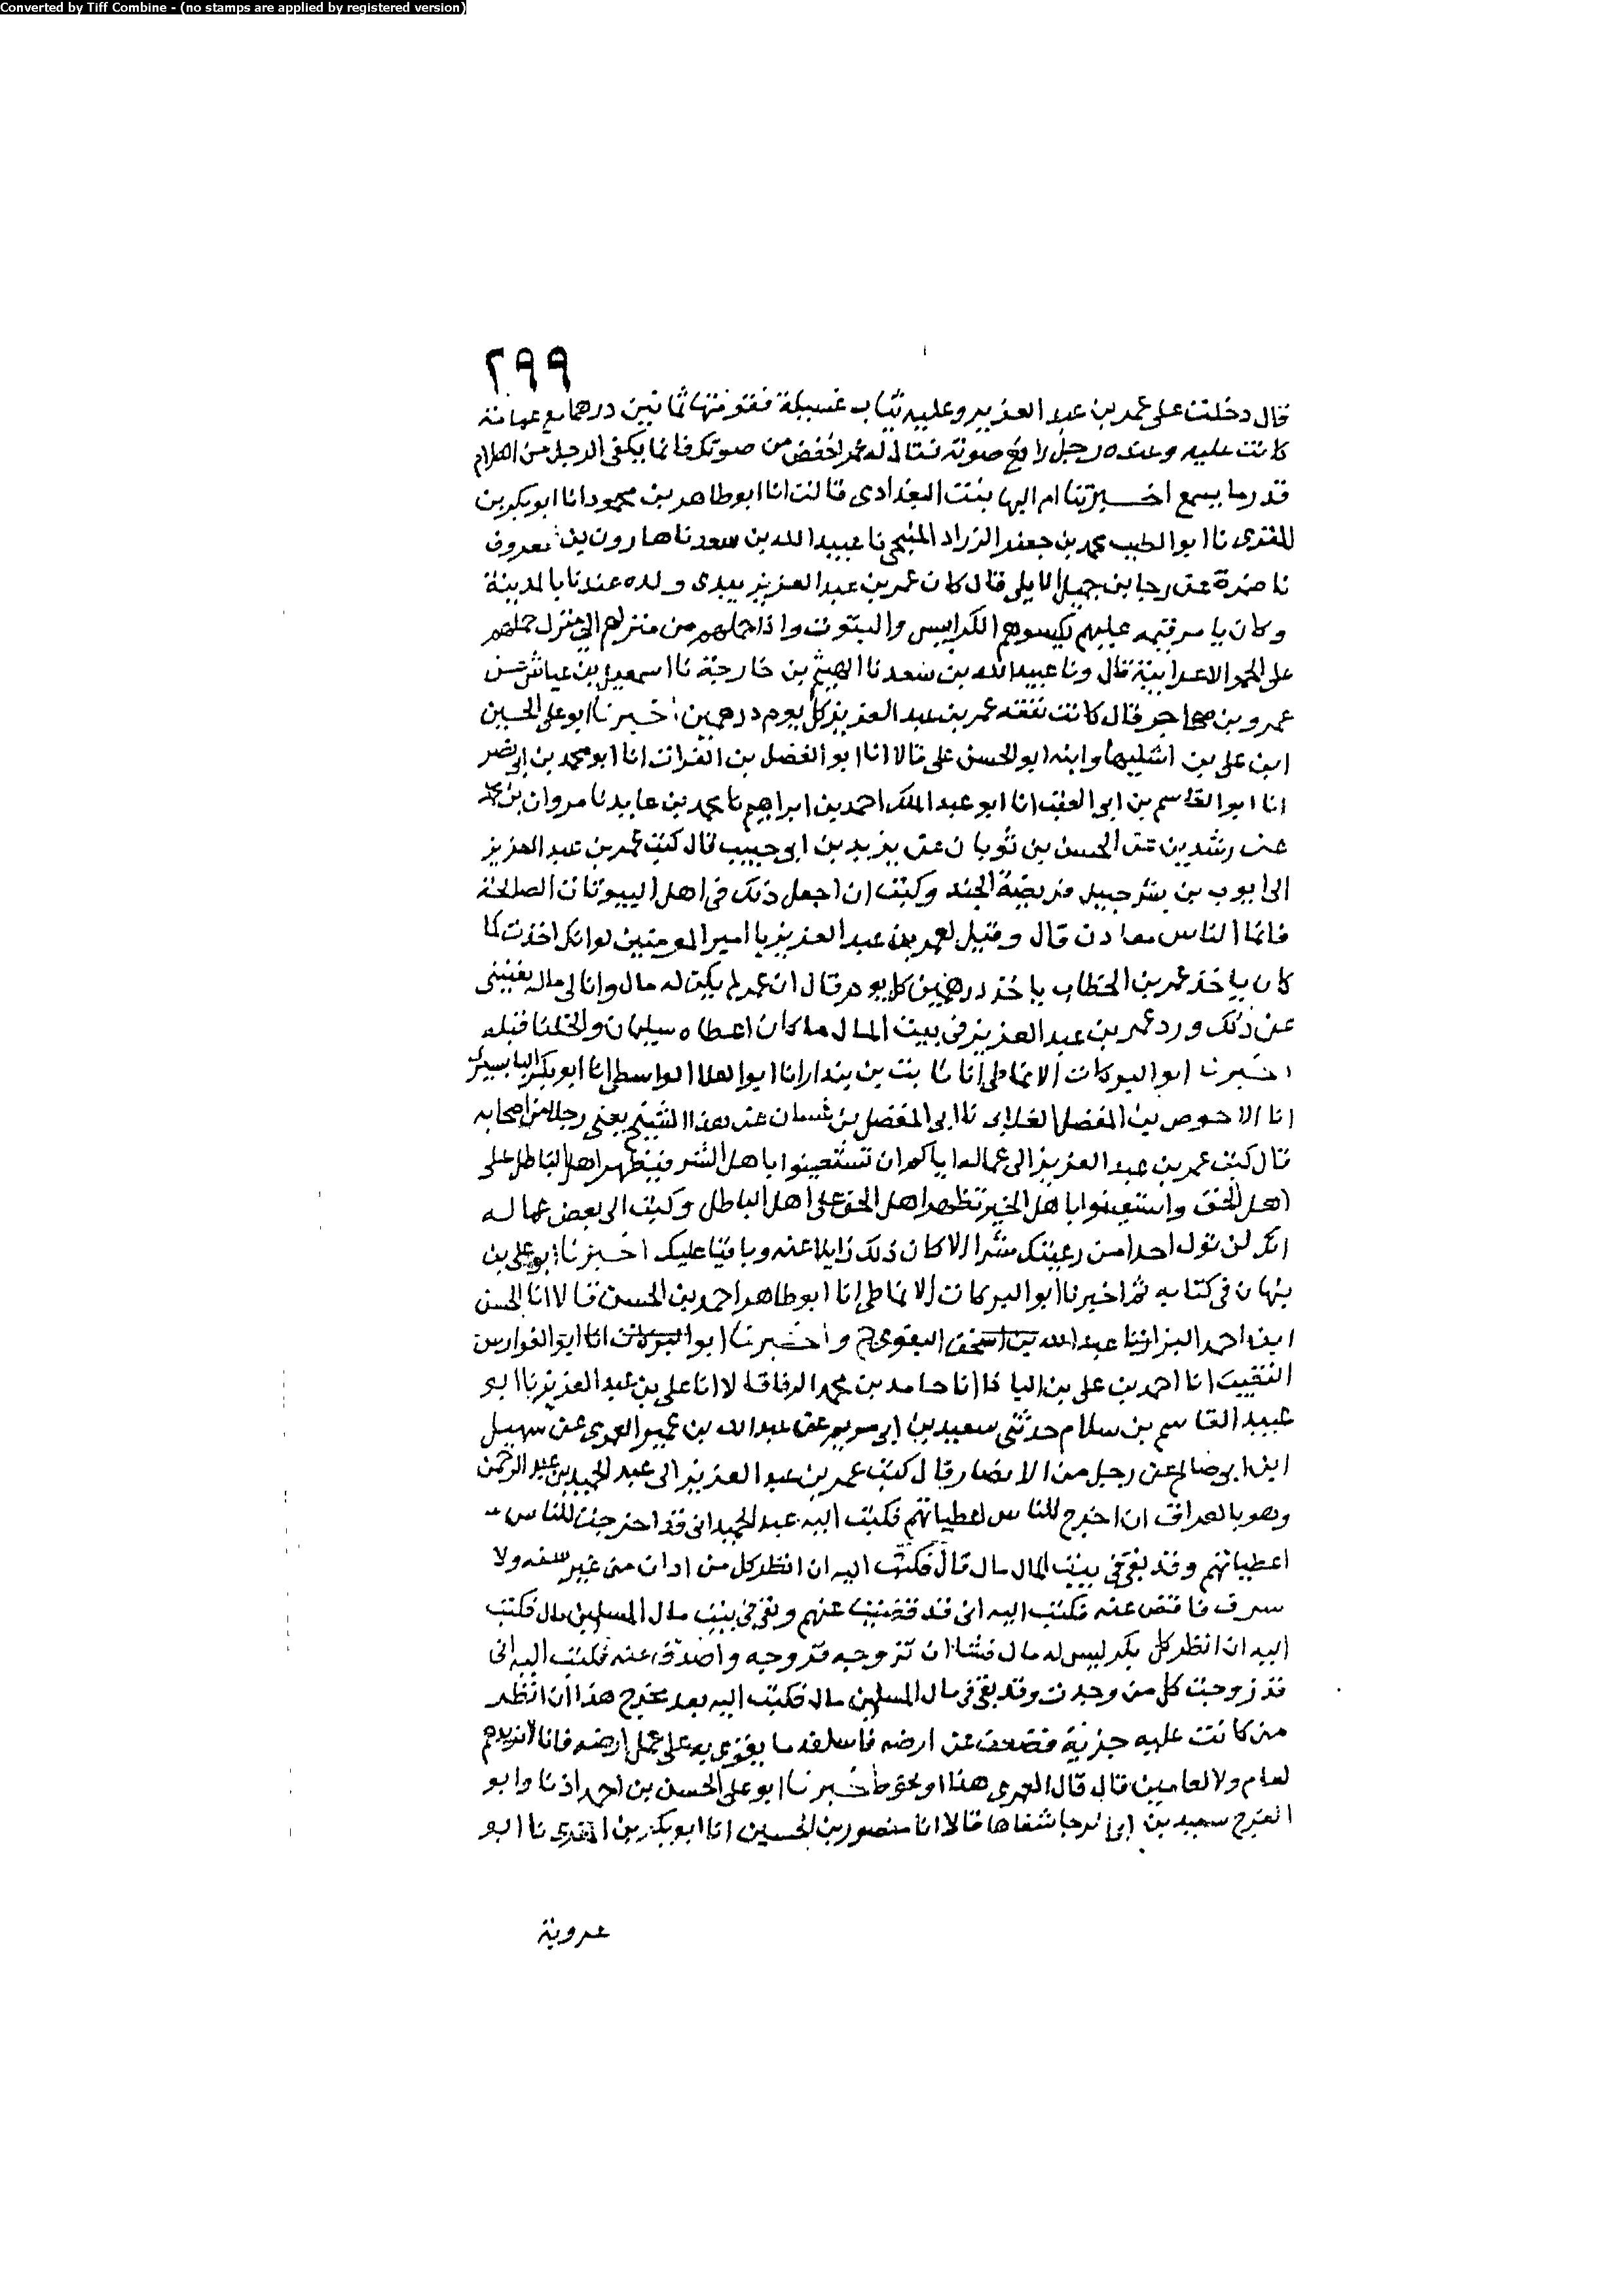 Converted by Tiff Combine - (no stamps are applied by registered version)
٢٩٩
قال دخلت على عمر بن عبد العزيز وعليه ثياب غسيلة فقومتها ثمانين درهما مع عمامة
كانت عليه وعنده رجل رافع صوته فقال له عمر اخفض من صوتك فانما يكفى الرجل من الكلام
قدر ما يسمع اخبرتنا ام البها بنت البغدادى قالت انا ابو طاهر بن محمود انا ابو بكر بن
المقرى نا ابو الطيب محمد بن جعفر الزراد المنبجى نا عبيد الله بن سعد نا هارون بن معروف
نا ضمرة عن رجا بن جميل الايلى قال كان عمر بن عبد العزيز يبدى ولده عندنا بالمدينة
وكان يامر قيمه عليهم يكسوهم الكرابيس والبتوت واذا حملهم من منزلهم الى منزل حملهم
على الحمر الاعرابية قال ونا عبيد الله بن سعد نا الهيثم بن خارجة نا اسمعيل بن عياش عن
عمرو بن مهاجر قال كانت نفقة عمر بن عبد العزيز كل يوم درهمين اخبرنا ابو على الحسين
ابن على بن اشليها وابنه ابو الحسن على قالا انا ابو الفضل بن الفرات انا ابو محمد بن ابى نصر
انا ابو القاسم بن ابى العقب انا ابو عبد الملك احمد بن ابراهيم نا محمد بن عايد نا مروان بن محمد
عن رشدين عن الحسن بن ثوبان عن يزيد بن ابى حبيب قال كتب عمر بن عبد العزيز
الى ايوب بن شرحبيل فريضة الجند وكتب ان اجعل ذلك فى اهل البيوتات الصالحة
فانما الناس معادن قال وقيل لعمر بن عبد العزيز يا امير المومنين لو انك اخذت كما
كان ياخذ عمر بن الخطاب ياخذ درهمين كل يوم قال ان عمر لم يكن له مال وانا لى مال يغنينى
عن ذلك ورد عمر بن عبد العزيز فى بيت المال ما كان اعطاه سليمان والخلفا قبله
اخبرنا ابو البركات الانماطى انا ثابت بن بندار انا ابو العلا الواسطى انا ابو بكر البابسيرى
انا الاحوص بن المفضل الغلابى نا ابى المفضل بن غسان عن هذا الشيخ يعنى رجلا من اصحابه
قال كتب عمر بن عبد العزيز الى عماله اياكم ان تستعينوا باهل الشر فيظهر اهل الباطل على
اهل الحق واستعينوا باهل الخير تظهر اهل الحق على اهل الباطل وكتب الى بعض عماله
انك لن تول احدا من رعيتك شرا الا كان ذلك زايلا عنه وباقيا عليك اخبرنا ابو على بن
نبهان فى كتابه ثم اخبرنا ابو البركات الانماطى انا ابو طاهر احمد بن الحسن قالا انا الحسن
ابن احمد البزاز نا عبد الله بن اسحق البغوى ح واخبرنا ابو البركات انا ابو الفوارس
النقيب انا احمد بن على بن البادا انا حامد بن محمد الرفا قالا انا على بن عبد العزيز نا ابو
عبيد القاسم بن سلام حدثنى سعيد بن ابى مريم عن عبد الله بن عمر العمرى عن سهيل
ابن ابى صالح عن رجل من الانصار قال كتب عمر بن عبد العزيز الى عبد الحميد بن عبد الرحمن
وهو بالعراق ان اخرج للناس اعطياتهم فكتب اليه عبد الحميد انى قد اخرجت للناس
اعطياتهم وقد بقى فى بيت المال مال قال فكتب اليه ان انظر كل من ادان من غير سفه ولا
سرف فاقض عنه فكتب اليه انى قد قضيت عنهم وبقى فى بيت مال المسلمين مال فكتب
اليه ان انظر كل بكر ليس له مال فشا ان تزوجه فزوجه واصدق عنه فكتب اليه انى
قد زوجت كل من وجدت وقد بقى فى مال المسلمين مال فكتب اليه بعد مخرج هذا ان انظر
من كانت عليه جزية فضعف عن ارضه فاسلفه ما يقوى به على عمل ارضه فانا لا نريدهم
لعام ولا لعامين قال قال العمرى هذا او نحوه اخبرنا ابو على الحسن بن احمد اذنا وابو
الفرج سعيد بن ابى الرجا شفاها قالا انا منصور بن الحسين انا ابو بكر بن المقرى نا ابو
عروبة